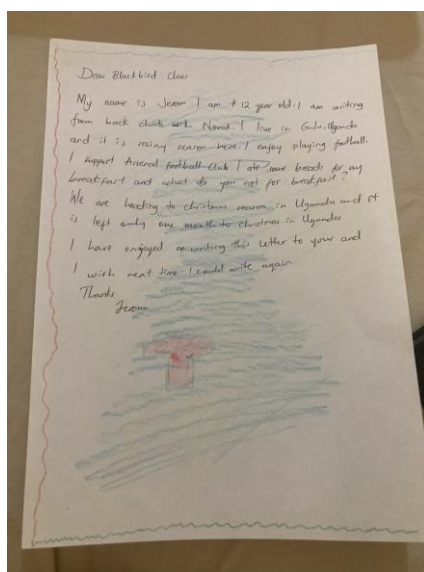 Dear Blackbird Class
My name is Jerom I am 12 year old. I am writing
from book club with Norah. I live in Gulu, Uganda
and it is rainy season here. I enjoy playing football.
I support Arsenal football Club I ate some breads for my
breakfast and what do you for breakfast?
We are heading to christmas season in Uganda and it
is left only one month to christmas in Uganda
I have enjoyed writing this letter to your and
I wish next time I could write again
Thanks
Jerom